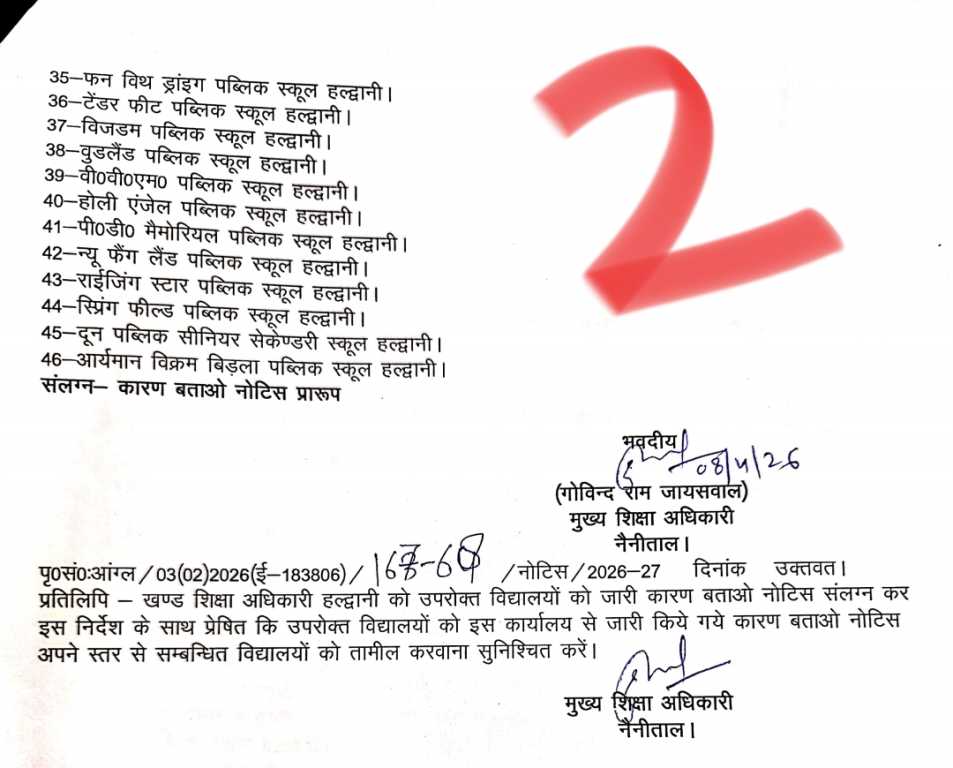 35–फन विथ ड्रांइग पब्लिक स्कूल हल्द्वानी।
36–टेंडर फीट पब्लिक स्कूल हल्द्वानी।
37–विजडम पब्लिक स्कूल हल्द्वानी।
38–वुडलैंड पब्लिक स्कूल हल्द्वानी।
39–वी0वी0एम0 पब्लिक स्कूल हल्द्वानी।
40–होली एंजेल पब्लिक स्कूल हल्द्वानी।
41–पी0डी0 मैमोरियल पब्लिक स्कूल हल्द्वानी।
42–न्यू फैंग लैंड पब्लिक स्कूल हल्द्वानी।
43–राईजिंग स्टार पब्लिक स्कूल हल्द्वानी।
44–स्प्रिंग फील्ड पब्लिक स्कूल हल्द्वानी।
45–दून पब्लिक सीनियर सेकेण्डरी स्कूल हल्द्वानी।
46–आर्यमान विक्रम बिड़ला पब्लिक स्कूल हल्द्वानी।
संलग्न– कारण बताओ नोटिस प्रारूप
2
भवदीय
08/4/26
(गोविन्द राम जायसवाल)
मुख्य शिक्षा अधिकारी
नैनीताल।
पृ0सं0:आंग्ल/03(02)2026(ई–183806)/ /नोटिस/2026–27 दिनांक उक्तवत।
प्रतिलिपि – खण्ड शिक्षा अधिकारी हल्द्वानी को उपरोक्त विद्यालयों को जारी कारण बताओ नोटिस संलग्न कर
इस निर्देश के साथ प्रेषित कि उपरोक्त विद्यालयों को इस कार्यालय से जारी किये गये कारण बताओ नोटिस
अपने स्तर से सम्बन्धित विद्यालयों को तामील करवाना सुनिश्चित करें।
मुख्य शिक्षा अधिकारी
नैनीताल।